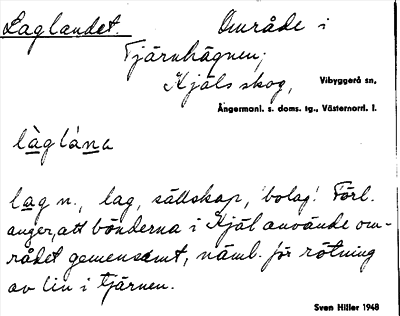 Laglandet. Område i
Tjärnhägnen,
Kjäls skog, Vibyggerå sn,
Ångermanl. s. doms. tg., Västernorrl. l.
làglána
lag n., lag, sällskap, 'bolag'. Förf.
anger, att bönderna i Kjäl använde om-
rådet gemensamt, näml. för rötning
av lin i tjärnen.
Sven Hiller 1948